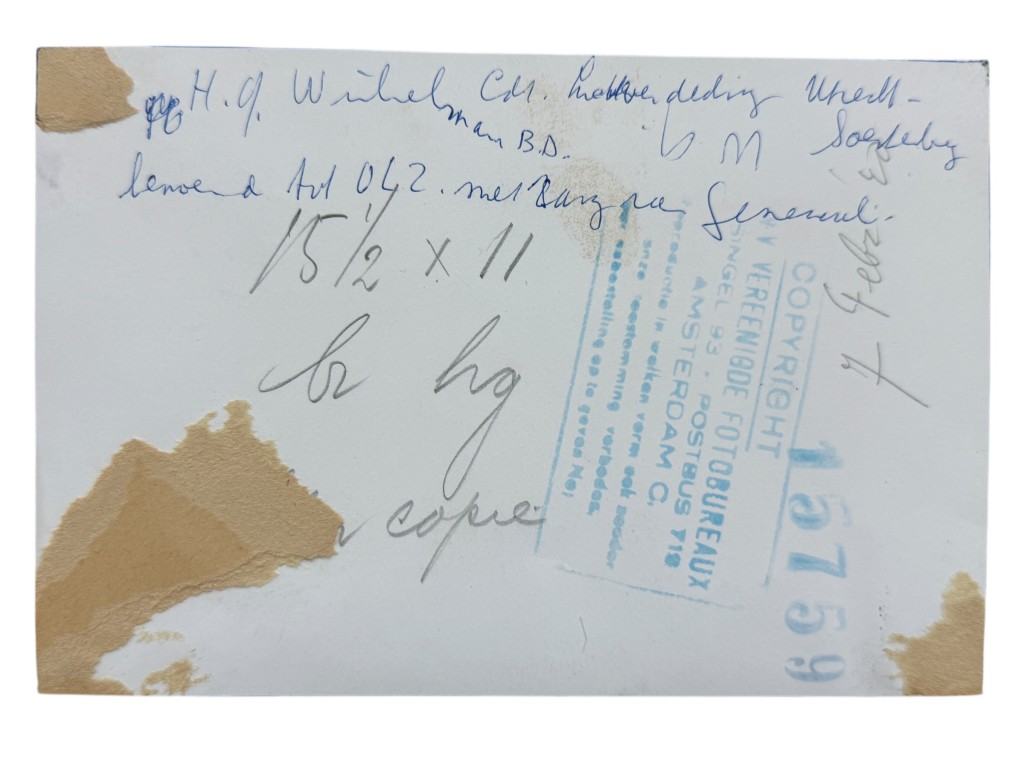 H. G. Wilhelm Cdt. Luchtverdediging Utrecht-
man B.D. Soesterberg
benoemd tot OLZ. met Rang van Generaal.-
15 1/2 x 11
br hg
copie
7 Febr
COPYRIGHT
N V VEREENIGDE FOTOBUREAUX
SINGEL 93 - POSTBUS 718
AMSTERDAM C.
Reproductie in welken vorm ook zonder
onze toestemming verboden.
Bij nabestelling op te geven No:
15759